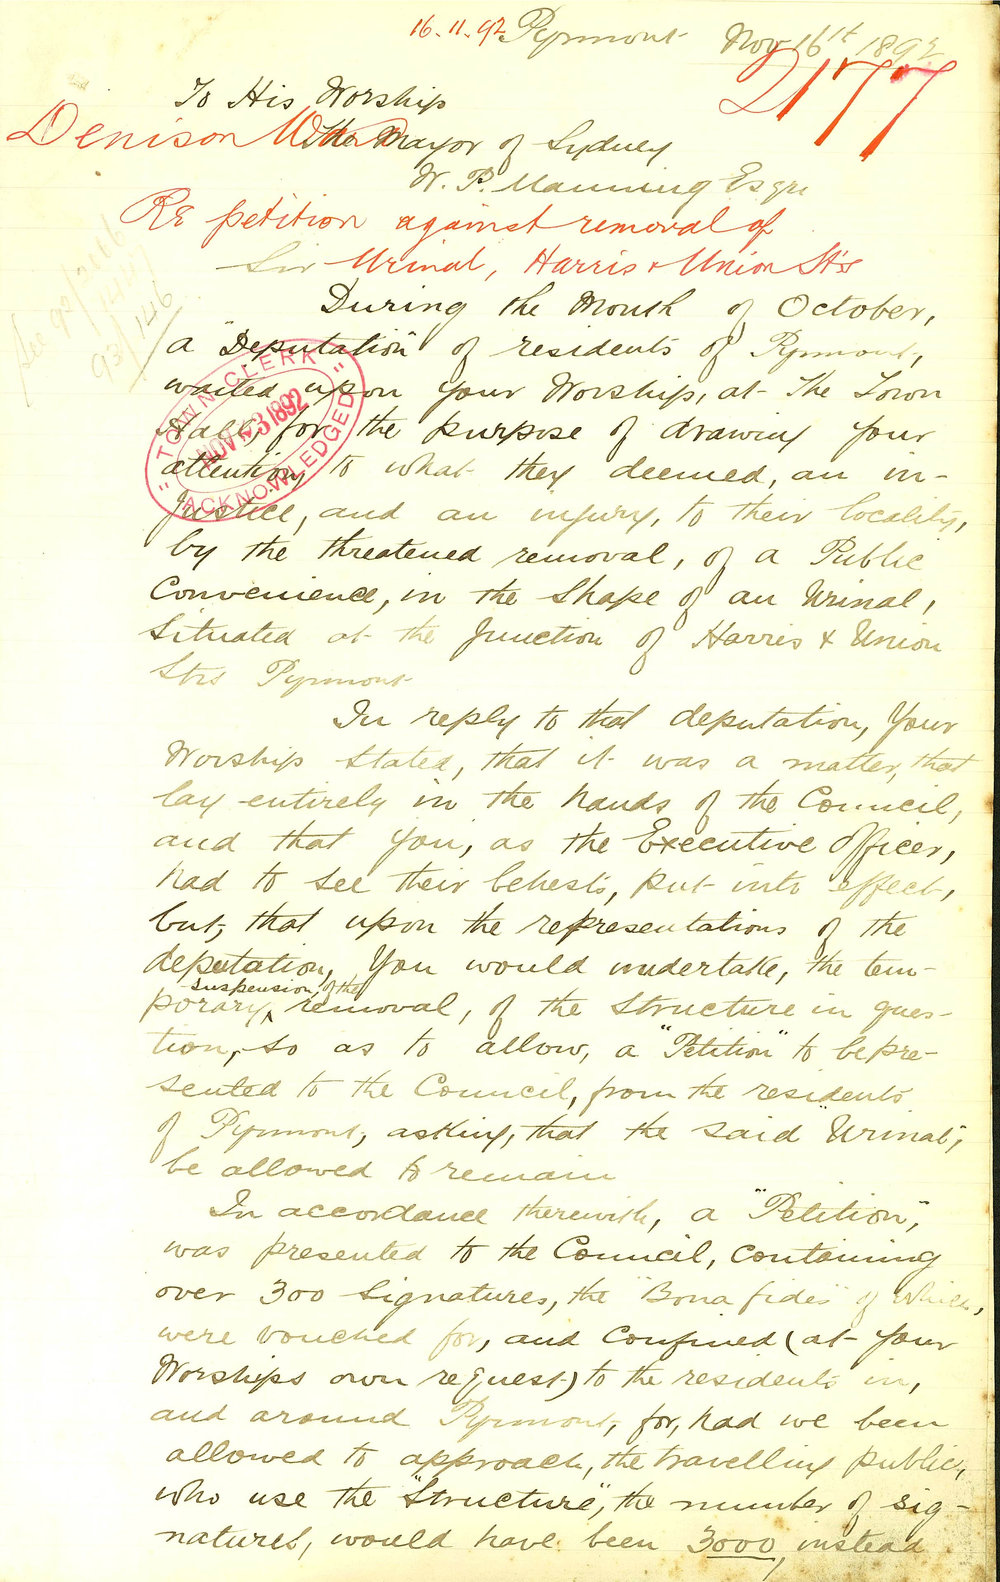 16.11.92 Pyrmont Nov 16th 1892
2177
To His Worship
Denison Ward
the Mayor of Sydney
W. P. Manning Esqre
RE petition against removal of
Sir Urinal, Harris & Union Sts
During the Month of October,
a "Deputation" of residents of Pyrmont,
waited upon your Worship, at the Town
Hall, for the purpose of drawing your
attention to what they deemed, an in-
justice, and an injury, to their locality,
by the threatened removal, of a Public
Convenience, in the Shape of an Urinal,
Situated at the Junction of Harris & Union
Strs Pyrmont
"TOWN CLERK"
NOV 23 1892
ACKNOWLEDGED
See 92/
93/146
In reply to that deputation, Your
Worship Stated, that it was a matter, that
lay entirely in the hands of the Council,
and that you, as the Executive Officer,
had to see their behests, put into effect,
but, that upon the representations of the
deputation, You would undertake, the tem-
suspension, of the
porary removal, of the Structure in ques-
tion, so as to allow, a "Petition" to be pre-
sented to the Council, from the residents
of Pyrmont, asking, that the said "Urinal",
be allowed to remain
In accordance therewith, a "Petition",
was presented to the Council, containing
over 300 Signatures, the "Bona fides" of which,
were vouched for, and Confined (at your
Worships own request) to the residents in,
and around Pyrmont, for, had we been
allowed to approach, the travelling public,
who use the "Structure", the number of sig-
natures, would have been 3000, instead